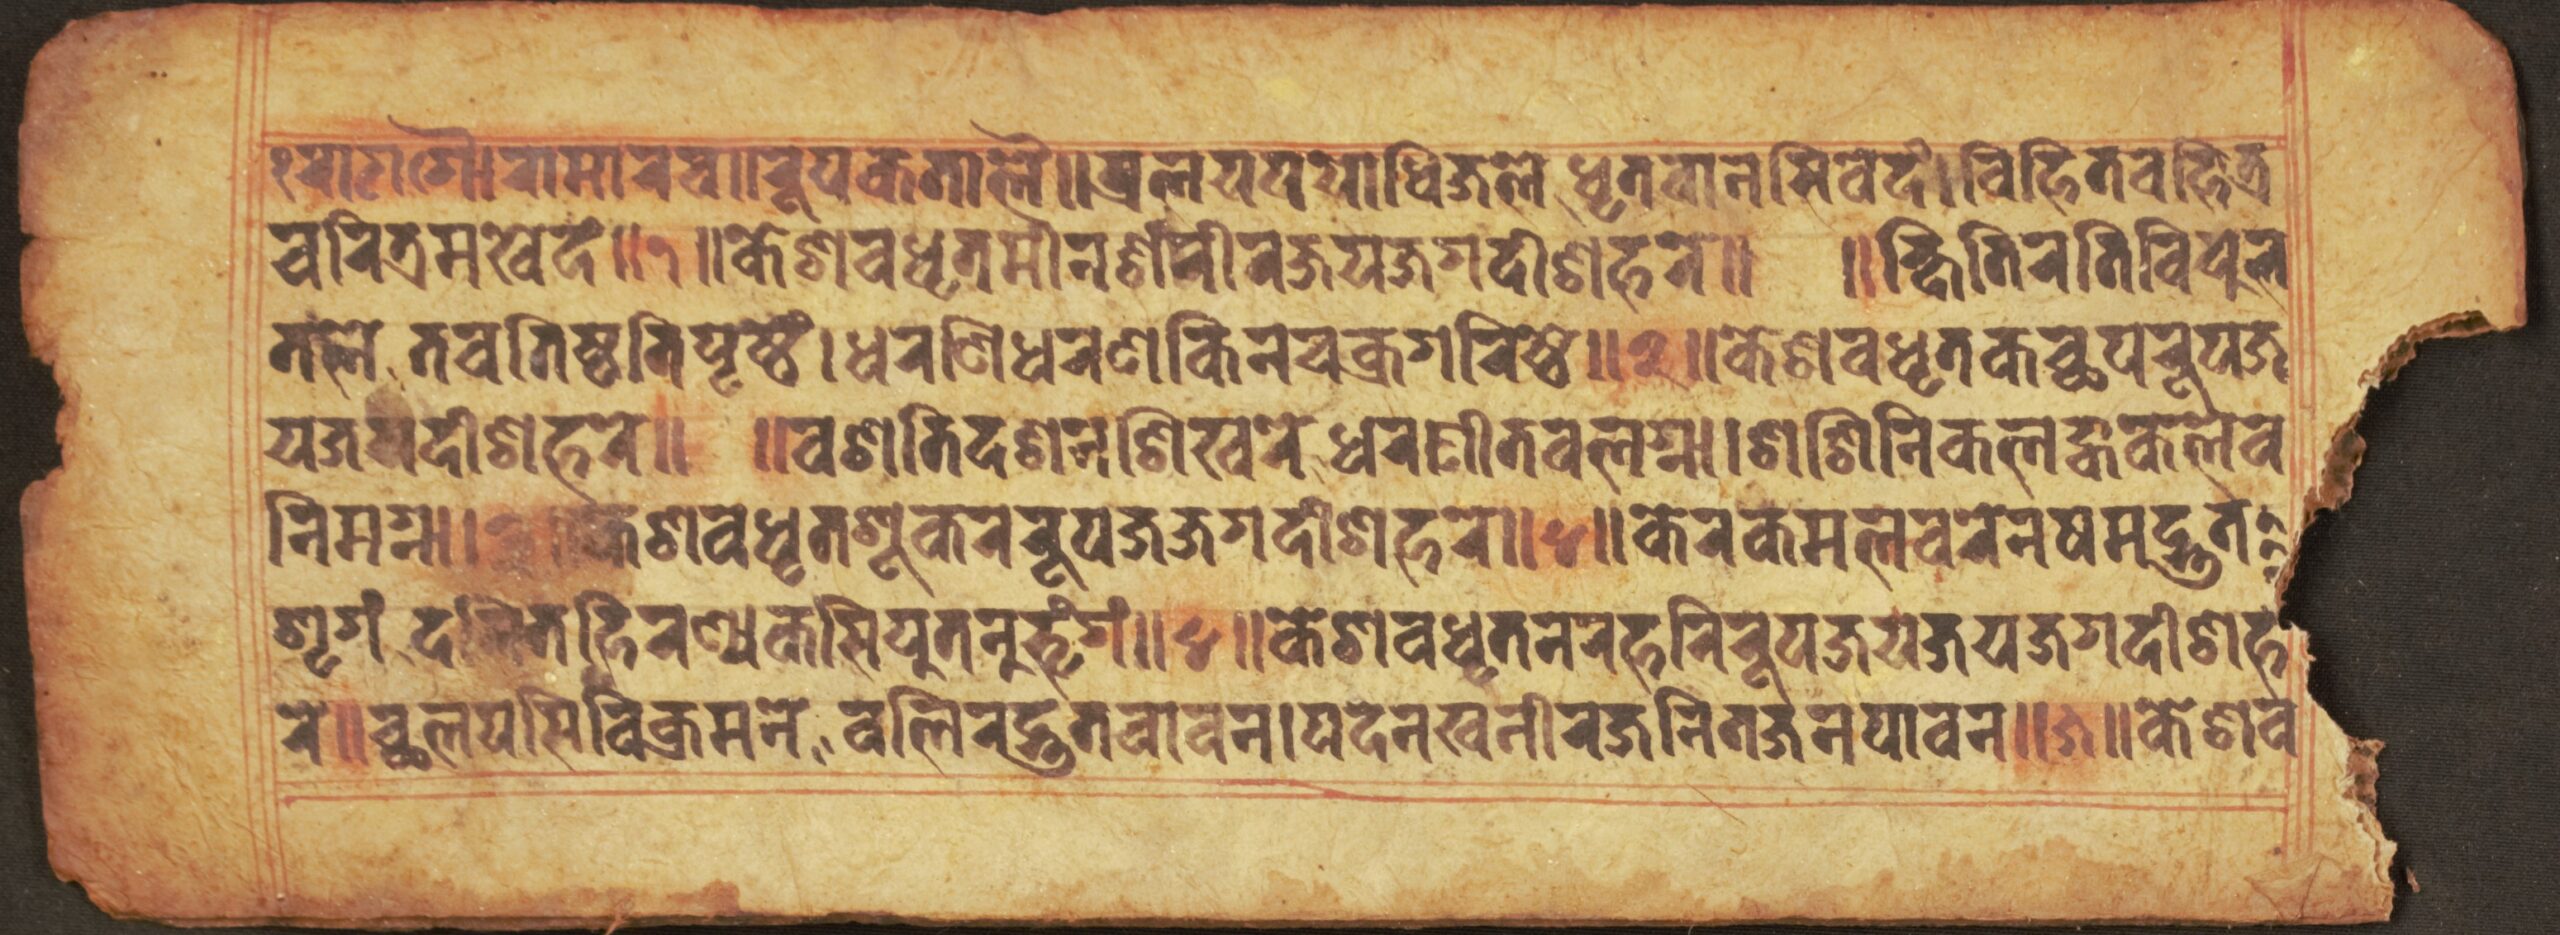 १ रागगौरामारव॥रूपकताल॥प्रलयपयोधिजले धृतवानसिवेदं।विहितवहित्र
चरित्रमखेदं॥१॥केशवधृतमीनशरीरजयजगदीशहरे॥ ॥क्षितिरतिविपुल
तले तवतिष्ठतिपृष्ठे।धरणिधरणकिनचक्रगरिष्ठे॥२॥केशवधृतकच्छपरूपज
यजगदीशहरे॥ ॥वशतिदशनशिखरे धरणीतवलग्ना।शशिनिकलङ्ककलेव
निमग्ना।३॥केशवधृतशूकररूपजजगदीशहरे॥४॥केरकमलवरेनषमद्भुत
शृगं दलितहिरण्यकसिपुतनुभृंगं॥४॥केशवधृतनरहरिरूपजयजयजगदीशह
रे॥च्छलयसिविक्रमने वलिरद्भुतवावन।पदेनखनीरजनितजनपावन॥ज॥केशव